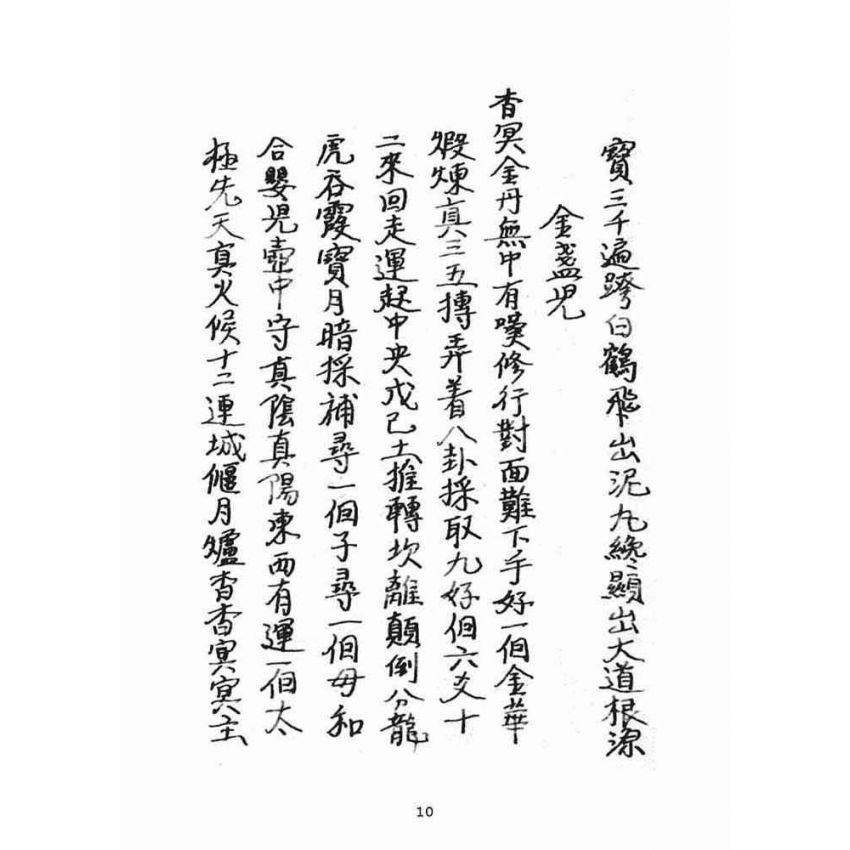 寶三千遍跨白鶴飛出泥丸纔顯出大道根源
金盞児
杳冥金丹無中有嘆修行對面難下手好一個金華
煅煉真三五摶弄着八卦採取九好個六爻十
二來回走運起中央戊己土推轉坎離顛倒分龍
虎吞霞寶月暗採補尋一個子尋一個母和
合嬰児壺中守真陰真陽東西有運一個太
極先天真火候十二連城偃月爐杳杳冥冥主
10